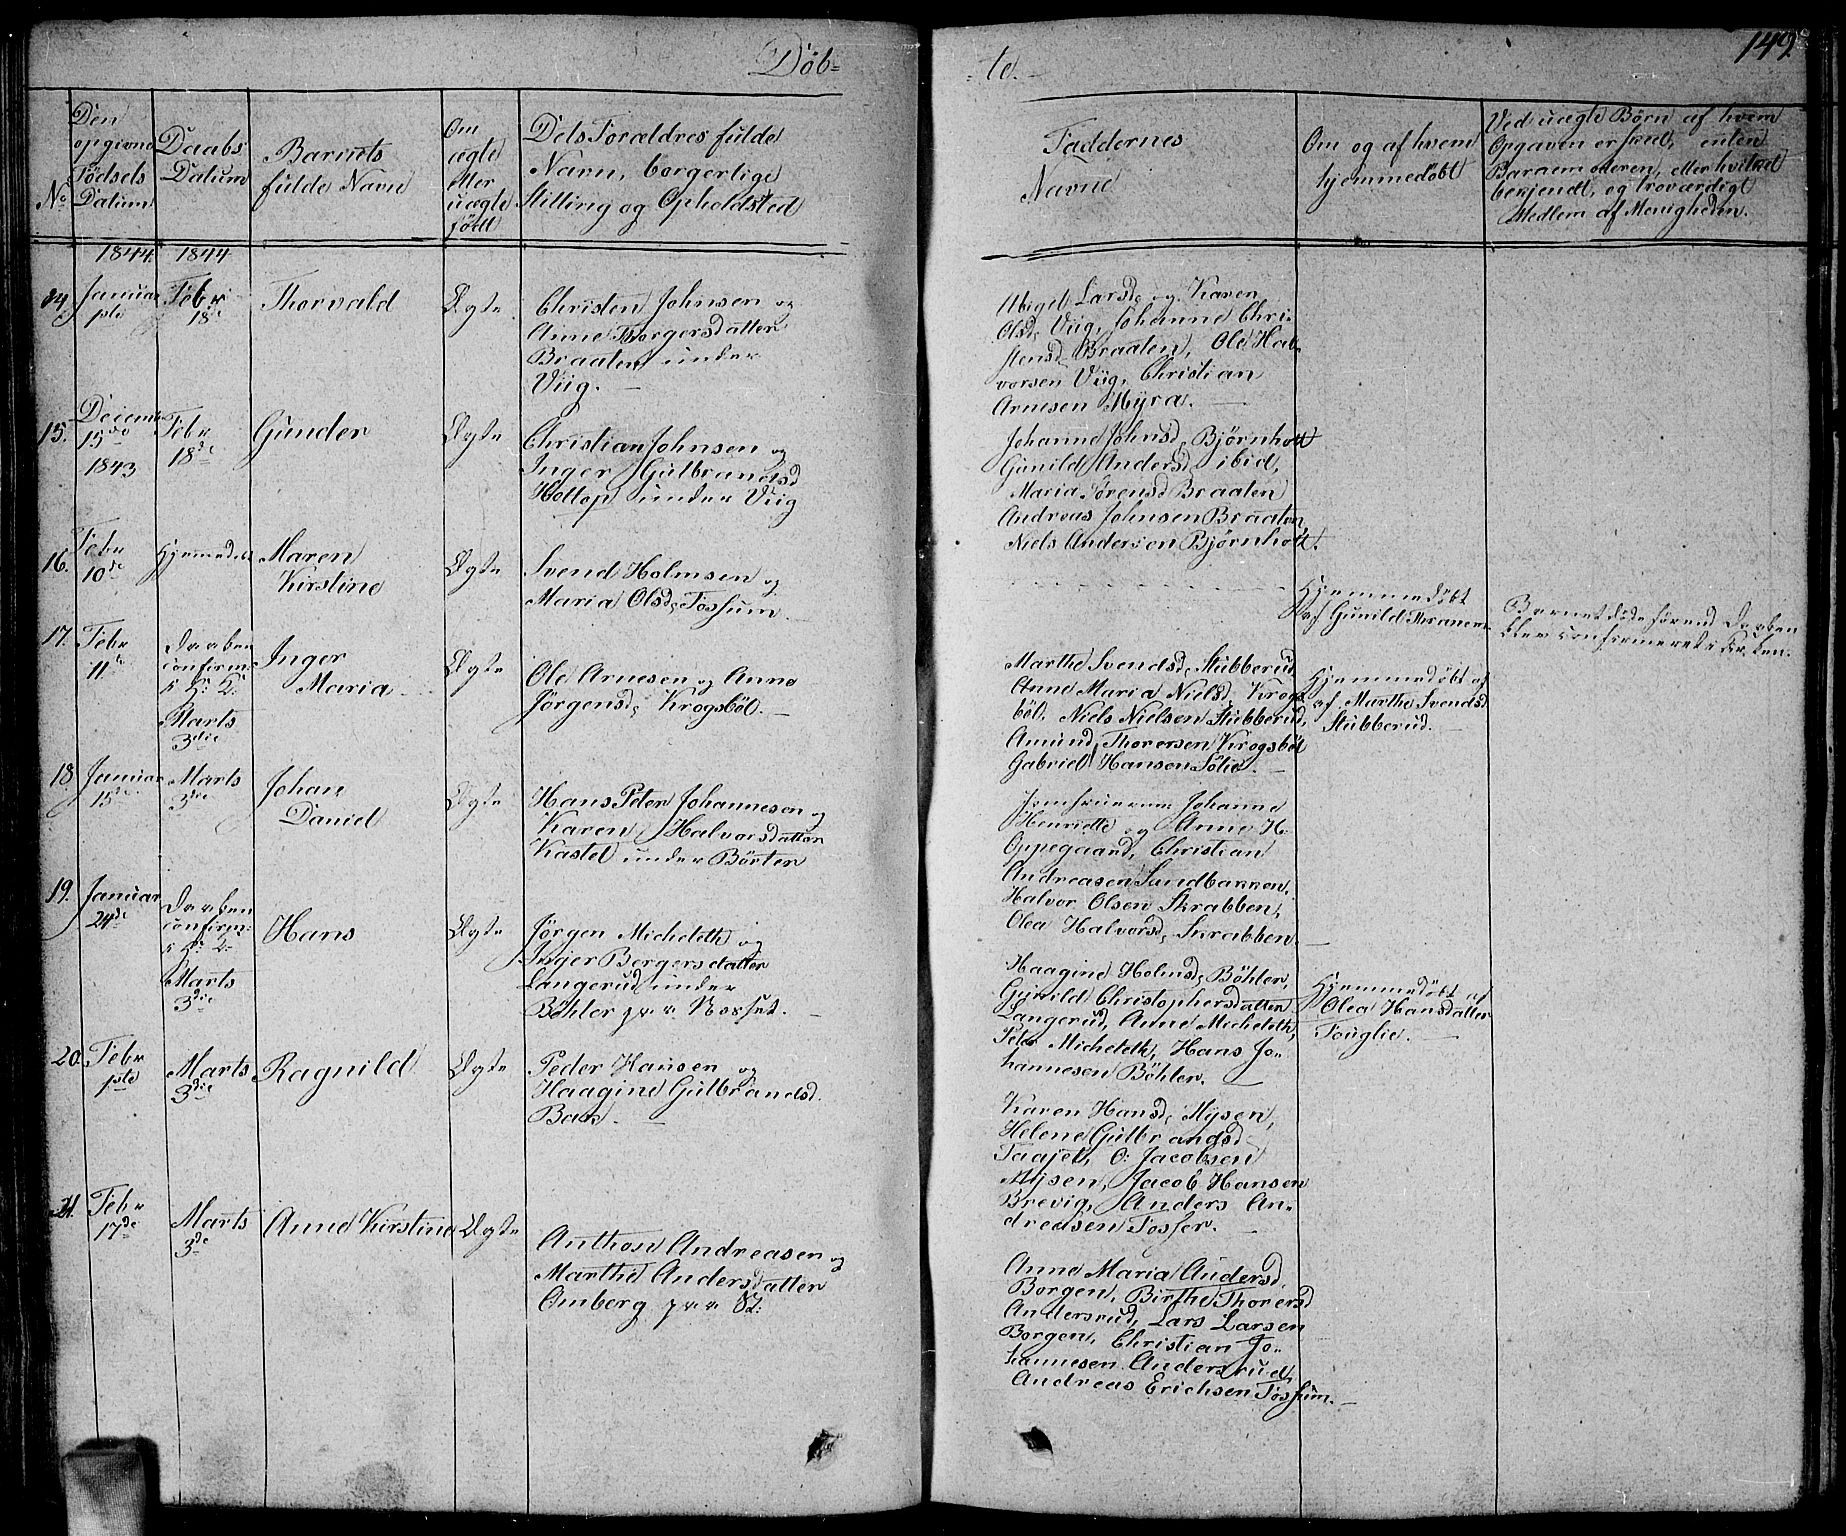 Döb=
=te.
149.
No
Den
opgivne
Födsels
Datum
Daabs
Datum
Barnets
fulde Navn
Om
ægte
eller
uægte
födt
Dets Forældres fulde
Navn, borgerlige
Stilling og Opholdsted
Faddernes
Navne
Om og af hvem
hjemmedöbt
Ved uægte Börn af hvem
Opgaven er skeed, enten
Barnemoderen, eller hvilket
bekjendt, og troværdigt
Medlem af Menigheden.
1844. 1844
14.
Januar
1ste
Febr
18de
Thorvald
Ægte
Christen Johnsen og
Anne Borgersdatter
Braaten under
Viig.
Abigel Larsd. og Karen
Olsd. Viig, Johanne Chri-
stensd. Braaten, Ole Hal-
vorsen Viig, Christian
Arnesen Myra.
15.
Decemb
15de
1843
Febr
18de
Gunder
Ægte
Christian Johnsen og
Inger Gulbrandsd
Holtop under Viig
Johanne Johnsd. Björnholt
Gunild Andersd. ibid,
Maria Sörensd Braaten
Andreas Johnsen Braaten,
Niels Andersen Björnholt.
16.
Febr
10de
Hjemmedöbt
Maren
Kirstine
Ægte
Svend Holmsen og
Maria Olsd. Tossum.
Hjemmedöbt
af Gunild Thranem
Barnet döde förend Daaben
blev confirmeret i Kirken.
17.
Febr
11te
Daaben
confirm:
i K: K:
Marts
3die
Inger
Maria
Ægte
Ole Arnesen og Anne
Jörgensd. Krogsböl.
Marthe Svendsd. Stubberud
Anne Maria Nielsd. Krogs
böl, Niels Nielsen Stubberud,
Amund Thoresen Krogsböl
Gabriel Hansen Solie.
Hjemmedöbt
af Marthe Svendsd
Stubberud.
18
Januar
15de
Marts
3die
Johan
Daniel
Ægte
Hans Peter Johannesen og
Karen Halvorsdatter
Kastet under Börten
Jomfruerne Johanne
Henriette og Anne H.
Oppegaard, Christian
Andreasen Sundbakken,
Halvor Olsen Skrabben,
Olea Halvorsd. Skrabben.
19.
Januar
24de
Daaben
confirm:
i K: K:
Marts
3die
Hans
Ægte
Jörgen Micheleth og
Inger Borgersdatter
Langerud under
Böhler
Haagine Holmsd. Böhler,
Gunild Christophersdatter
Langerud, Anne Micheleth,
Peter Micheleth, Hans Jo-
hannesen Böhler.
Hjemmedöbt af
Olea Hansdatter
Fouglie.
20.
Febr
1ste
Marts
3die
Ragnild
Ægte
Peder Hansen og
Haagine Gulbrandsd.
Bak.
Karen Hansd. Mysen,
Helene Gulbrandsd
Taajet, O: Jacobsen
Mysen, Jacob Hansen
Brevig, Anders An-
dreasen Tosser.
21.
Febr
17de
Marts
3de
Anne Kirstine
Ægte
Anthon Andreasen og
Marthe Andersdatter
Amberg
Anne Maria Andersd.
Borgen, Birthe Thorersd
Andersrud, Lars Larsen
Borgen, Christian Jo-
hannesen Andersrud,
Andreas Erichsen Tossum.